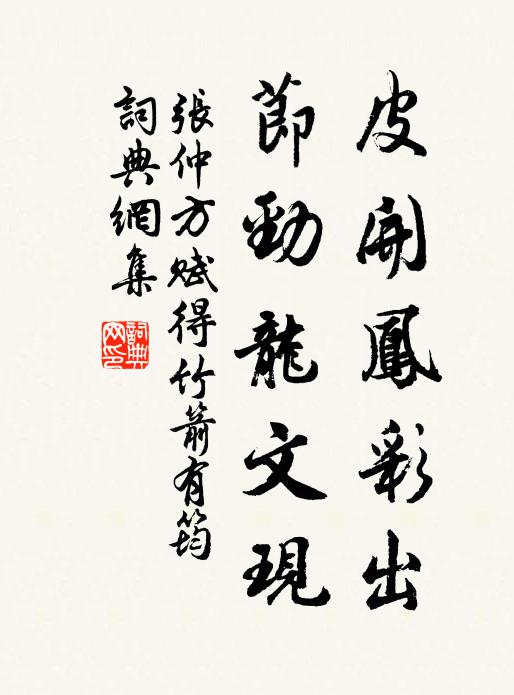 皮開鳳彩出
節勁龍文現
張仲方賦得竹箭有筠
詞典網集
詞典
网印